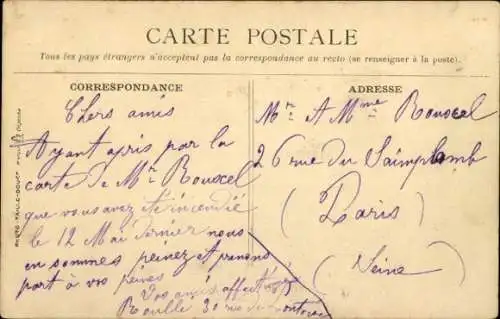 CARTE POSTALE
Tous les pays étrangers n'acceptent pas la correspondance au recto (se renseigner à la poste).
CORRESPONDANCE
Chers amis
Ayant apris par la
carte de Mr Rouxel
que vous avez été incendié
le 12 Mai dernier nous
en sommes peinez et prenons
part à vos peines
Vos amis affectionnés
30 rue de
ADRESSE
Mr & Mme Rouxel
26 rue du
(Paris)
(Seine)